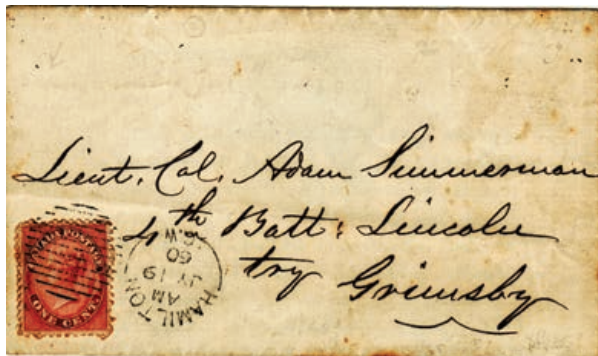 Lieut. Col. Adam Simmerman
4th Batt: Lincoln
try Grimsby
HAMILTON
AM
JY 19
60
C.W.
CANADA POSTAGE
ONE CENT